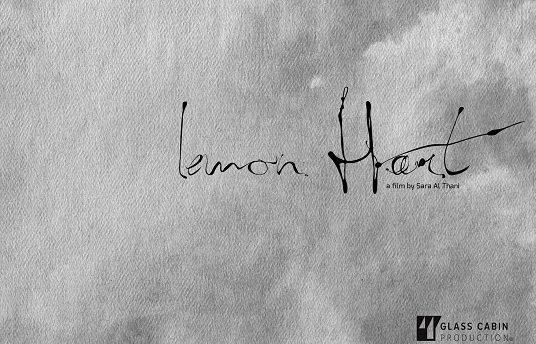 lemon Hart
a film by Sara Al Thani
GLASS CABIN
PRODUCTION